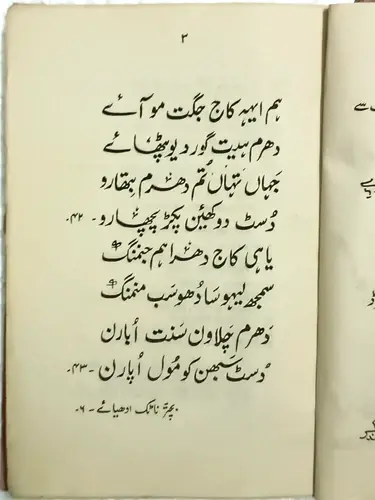 ۲
ہم ایہہ کاج جگت موآئے
دھرم ہیت گوردیوپٹھائے
جہاں تہاں تم دھرم بتھارو
دُسٹ دوکھئین پکڑ پچھارو - ۴۲-
یاہی کاج دھرا ہم جنمنگ
سمجھ لیہو سادھو سب منمنگ
دھرم چلاون سنت اُبارن
دُسٹ سبھن کو مُول اُپارن - ۴۳-
بچتر ناٹک ادھیائے - ۶-